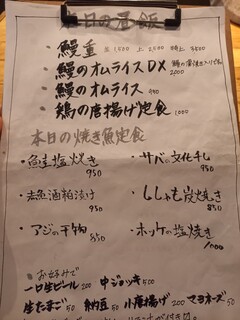 本日の昼飯
鰻重 並1,500 上2,500 特上3500
鰻のオムライスDX 2000
鰻のオムライス 990
鶏の唐揚げ定食 990
本日の焼き魚定食
・鮭塩焼き 950
・サバの文化干し 950
粕漬け 950
・ししゃも炭焼き 850
・アジの干物 850
・ホッケの塩焼き 1000
お好みで
一口生ビール 200 中ジョッキ 500
生たまご 50 納豆 50 小唐揚げ 200 マヨネーズ 50